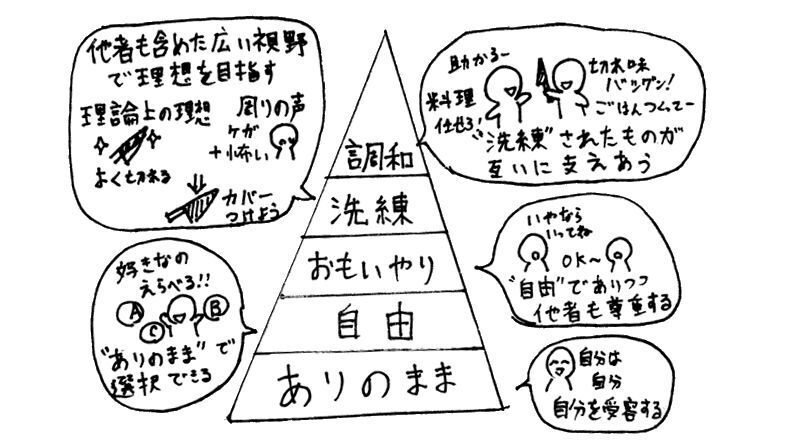 他者も含めた広い視野
で理想を目指す
理論上の理想
よく切れる
周りの声
ケガ
怖い
カバー
つけよう
助かるー
料理
任せろ!
切れ味
バツグン!
ごはんつくってー
"洗練"されたものが
互いに支えあう
調和
洗練
おもいやり
自由
ありのまま
好きなの
えらべる!!
A
B
C
"ありのまま"で
選択できる
いやなら
いってね
OK~
"自由"でありつつ
他者も尊重する
自分は
自分
自分を受容する